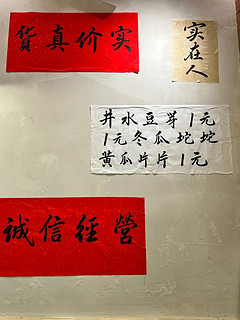 貨真价实
实在人
井水豆芽1元
1元冬瓜坨坨
黄瓜片片1元
誠信經營